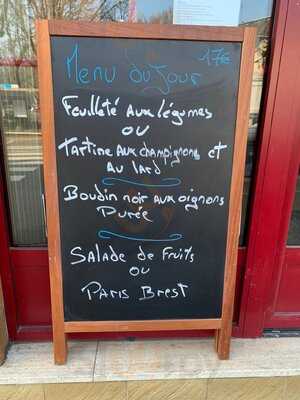 17€
Menu du Jour
Feuilleté aux légumes
ou
Tartine aux champignons et
au lard
Boudin noir aux oignons
Purée
Salade de fruits
ou
Paris Brest